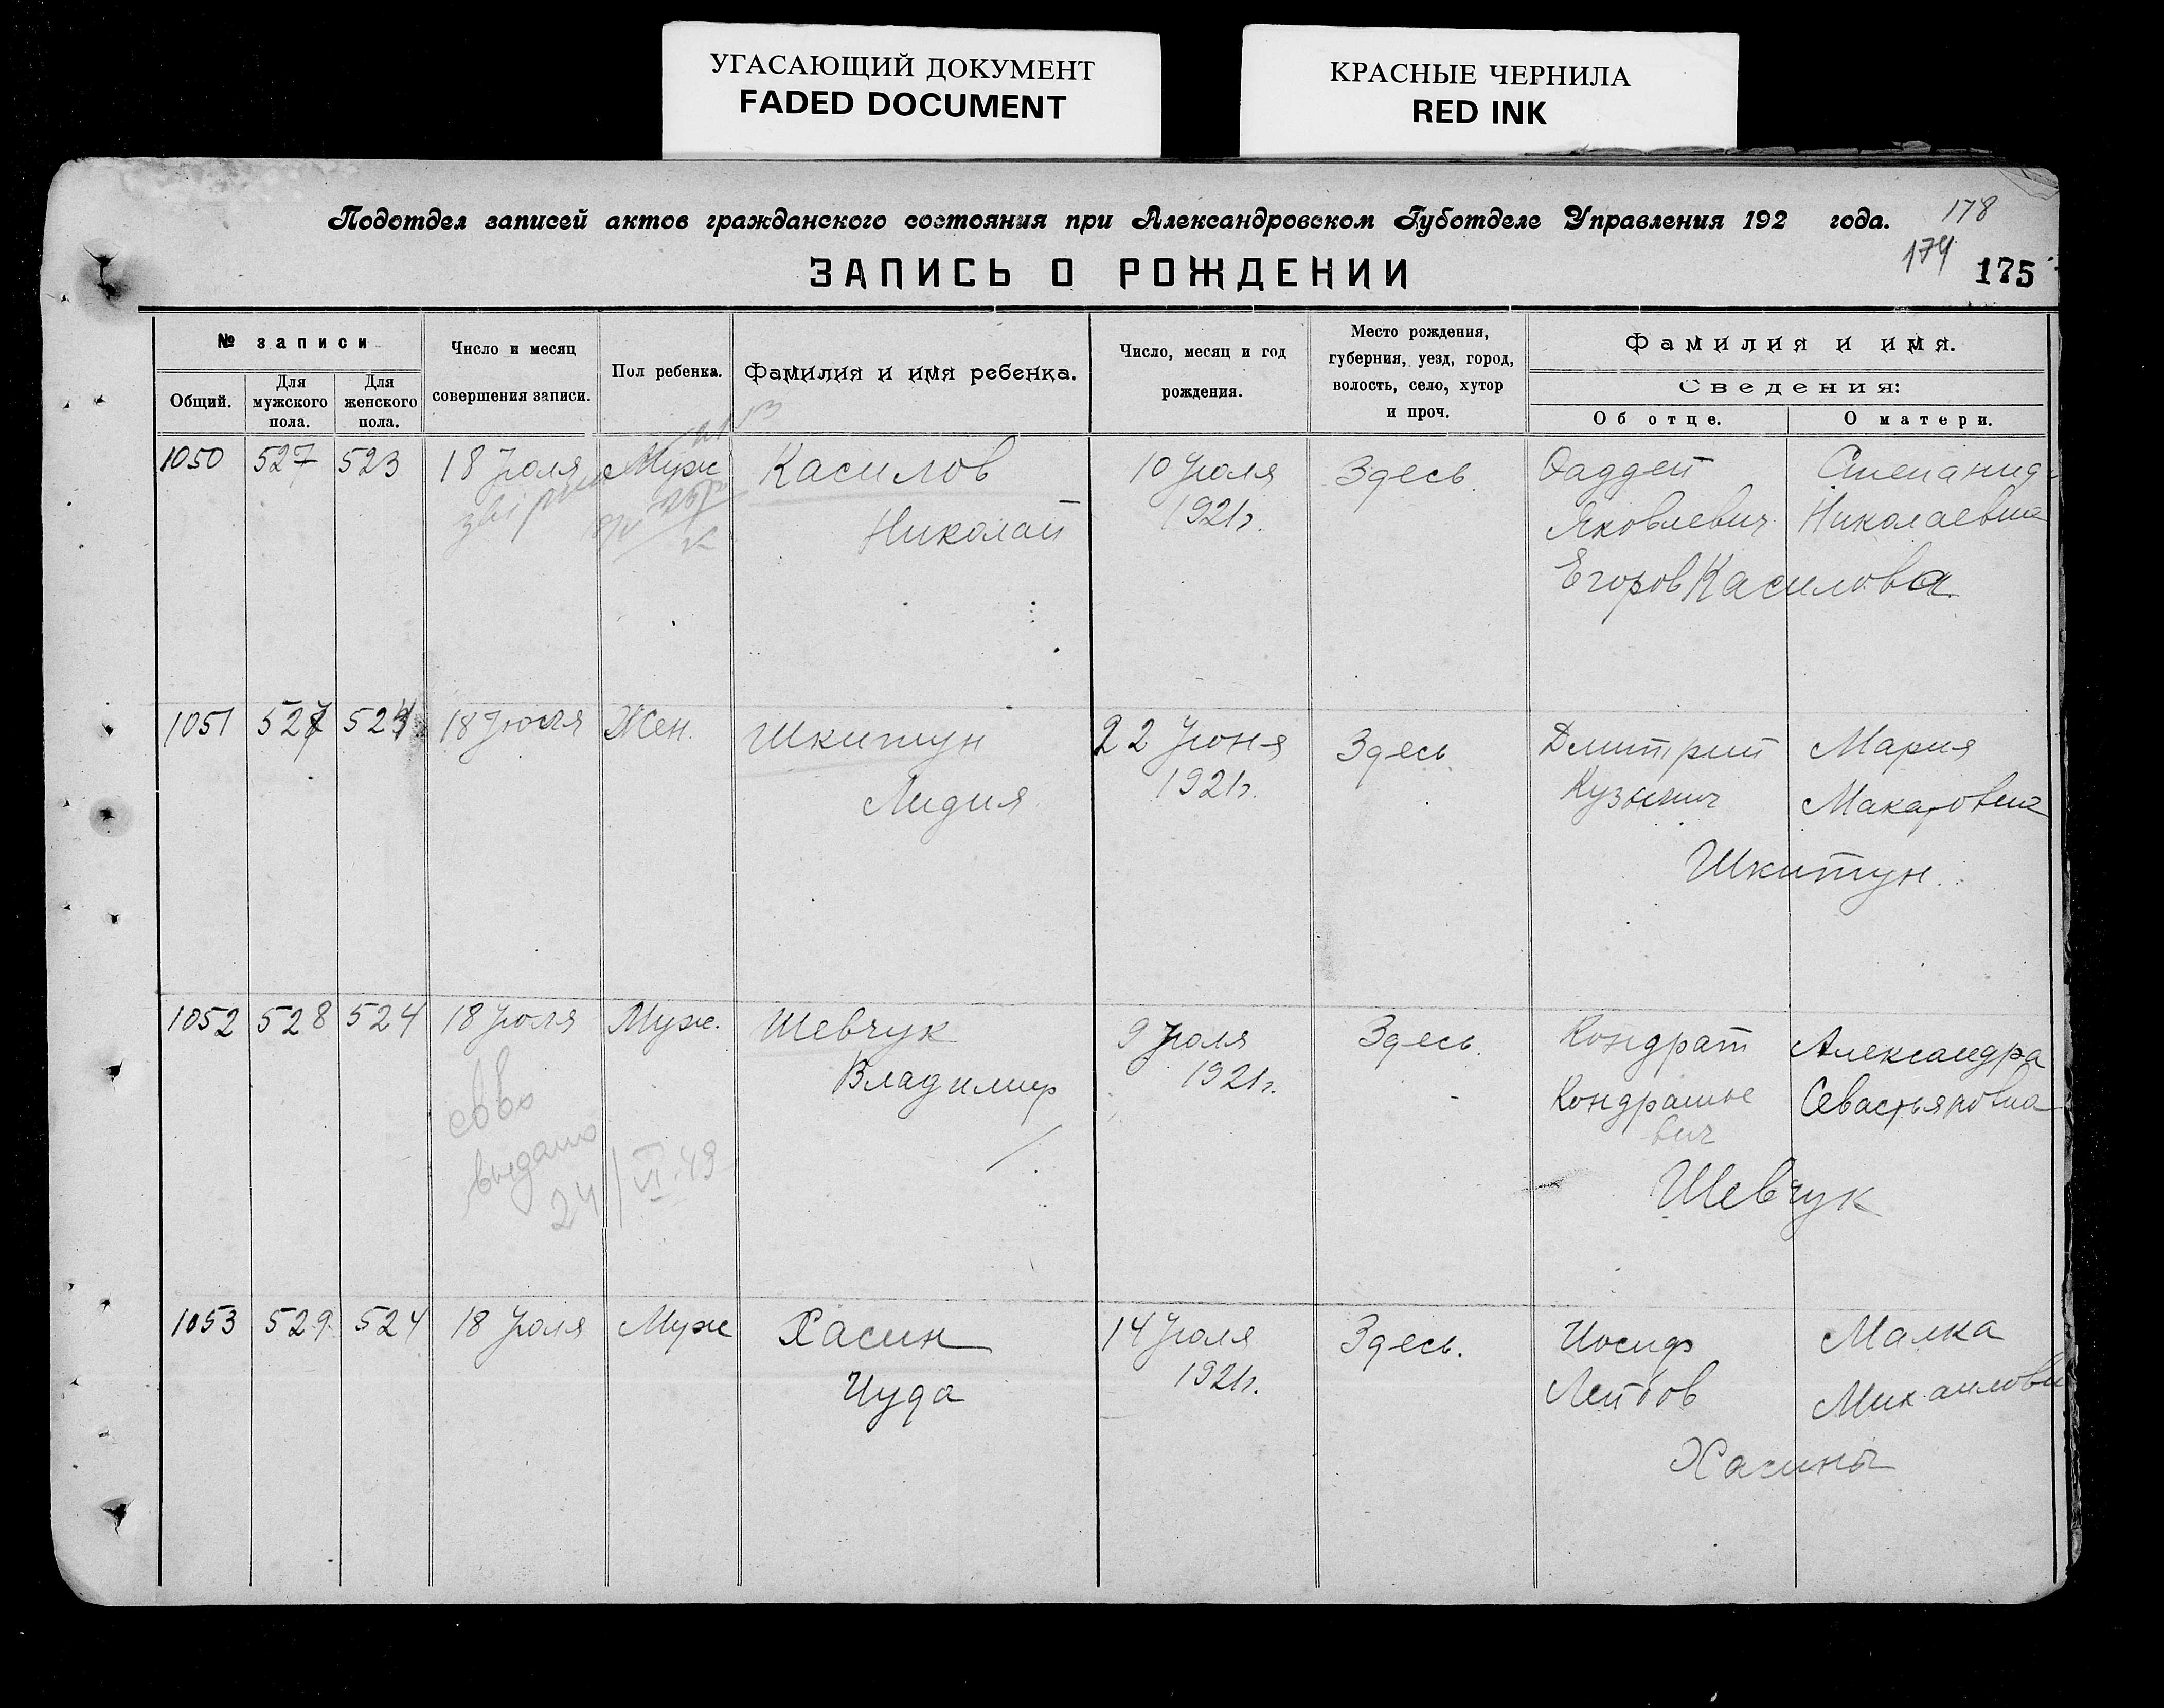 УГАСАЮЩИЙ ДОКУМЕНТ
FADED DOCUMENT
КРАСНЫЕ ЧЕРНИЛА
RED INK
Подотдел записей актов гражданского состояния при Александровском Губотделе Управления 192 года.
178
174
175
ЗАПИСЬ О РОЖДЕНИИ
№ записи
Общий.
Для мужского пола.
Для женского пола.
Число и месяц
совершения записи.
Пол ребенка.
Фамилия и имя ребенка.
Число, месяц и год
рождения.
Место рождения,
губерния, уезд, город,
волость, село, хутор
и проч.
Фамилия и имя.
Сведения:
Об отце.
О матери.
1050 527 523 18 Июля Муж Касилов 10 Июля Здесь Фаддей Степанид
Николай 1921г. Яковлевич Николаевна
Егоров Касилова
1051 527 524 18 Июля Жен. Шкитун 22 Июня Здесь Дмитрий Мария
Лидия 1921г. Кузьмич Макаровна
Шкитун.
1052 528 524 18 Июля Муж. Шевчук 9 Июля Здесь. Кондрат Александра
Владимир 1921г. Кондратье Севастьяновна
вич
выдано
24/VI.43
Шевчук
1053 529 524 18 Июля Муж Хасин 14 Июля Здесь. Иосиф Малка
Иуда 1921г. Лейбов Михаиловн
Хасины